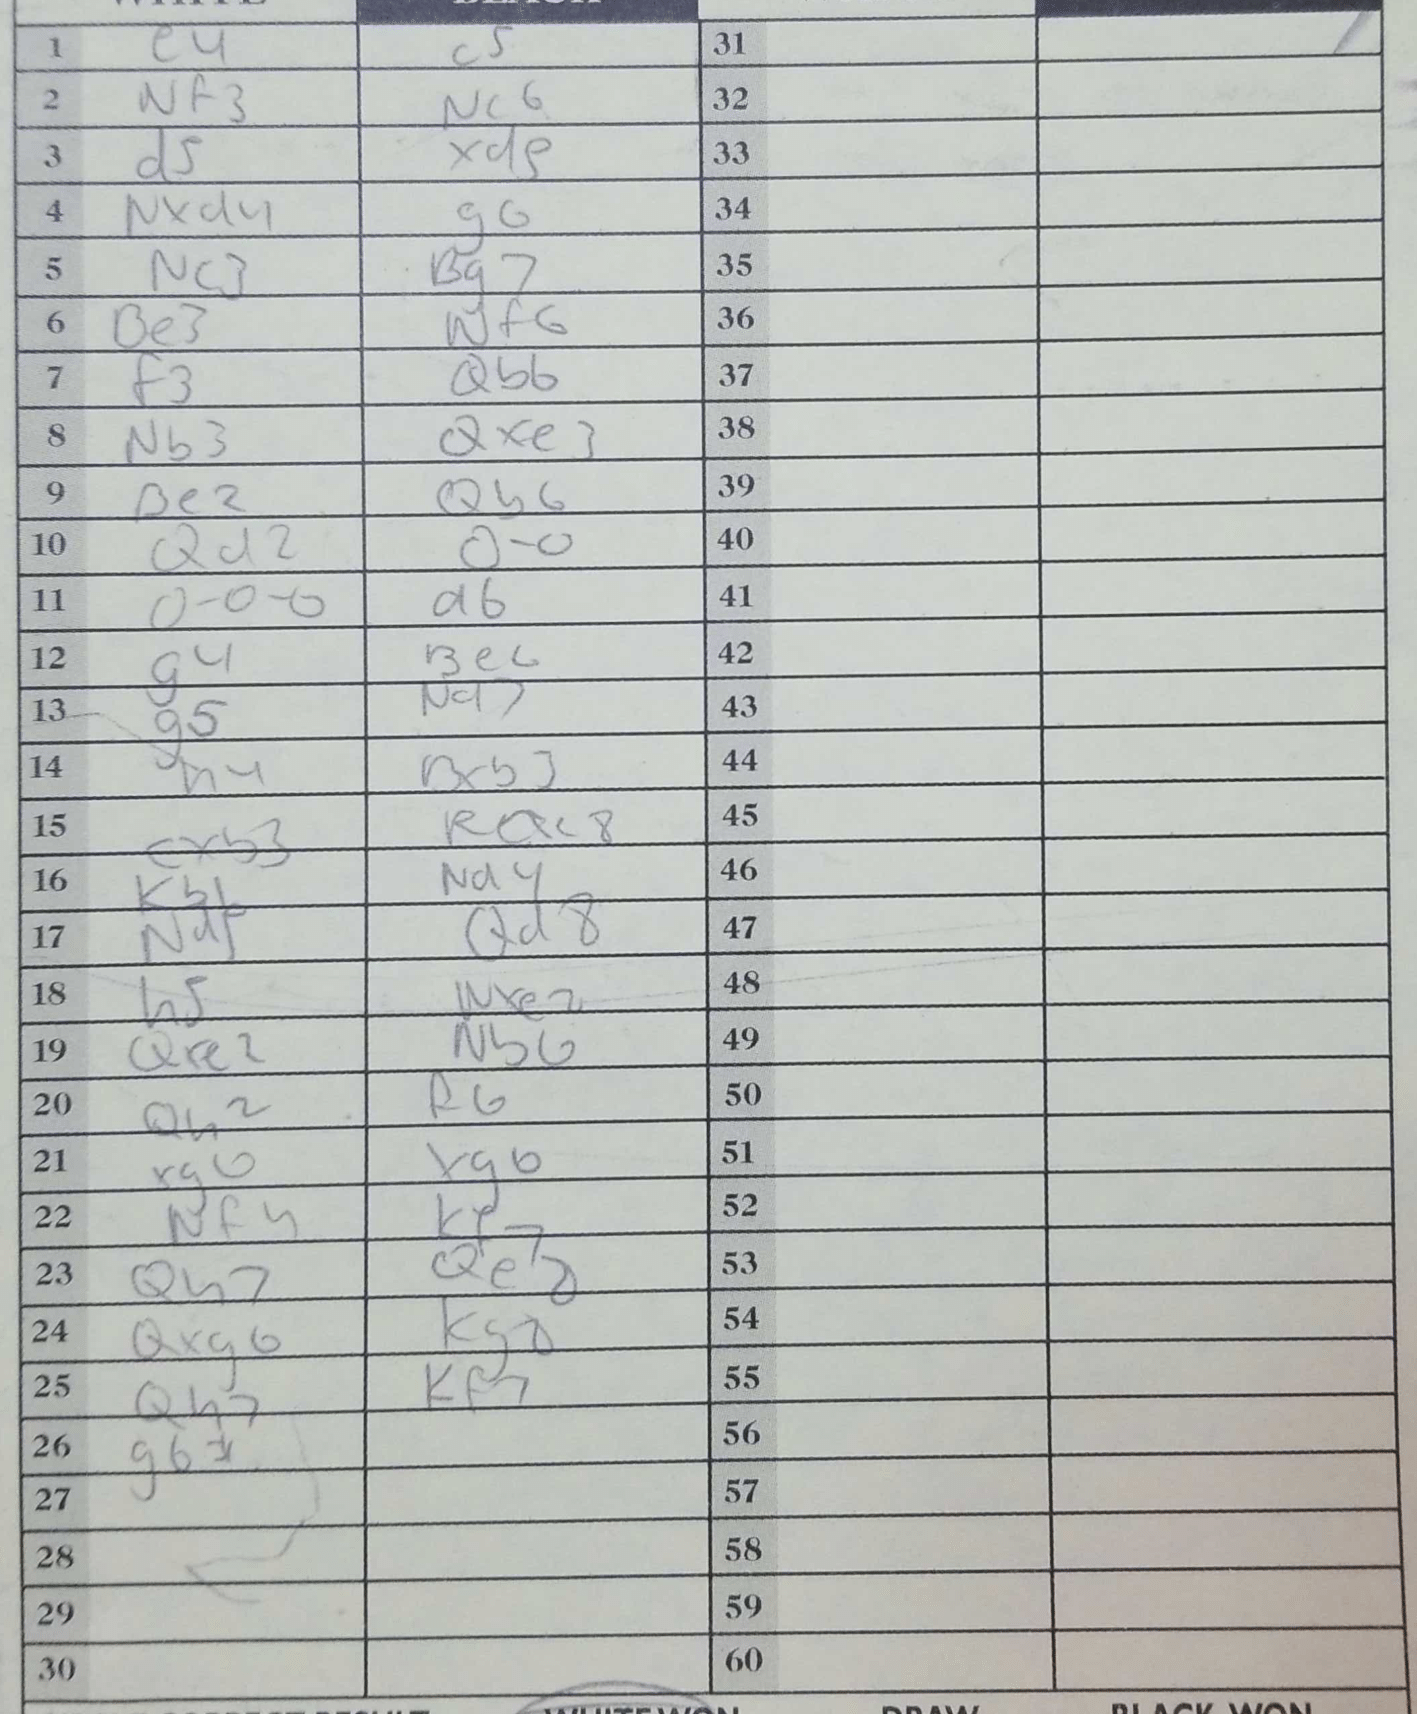 WHITE BLACK
1 e4 c5 31
2 Nf3 Nc6 32
3 d5 xd5 33
4 Nxd4 g6 34
5 Nc3 Bg7 35
6 Be3 Nf6 36
7 f3 Qb6 37
8 Nb3 Qxe3 38
9 Be2 Qb6 39
10 Qd2 0-0 40
11 0-0-0 d6 41
12 g4 Be6 42
13 g5 Nd7 43
14 h4 Bxb3 44
15 cxb3 Rac8 45
16 Kb1 Nd4 46
17 Nd5 Qd8 47
18 h5 Nxe2 48
19 Qxe2 Nb6 49
20 Qh2 f6 50
21 xg6 xg6 51
22 Nf4 Kf7 52
23 Qh7 Qe8 53
24 Qxg6 Kg8 54
25 Qh7 Kf7 55
26 g6# 56
27 57
28 58
29 59
30 60
CORRECT RESULT WHITE WON DRAW BLACK WON